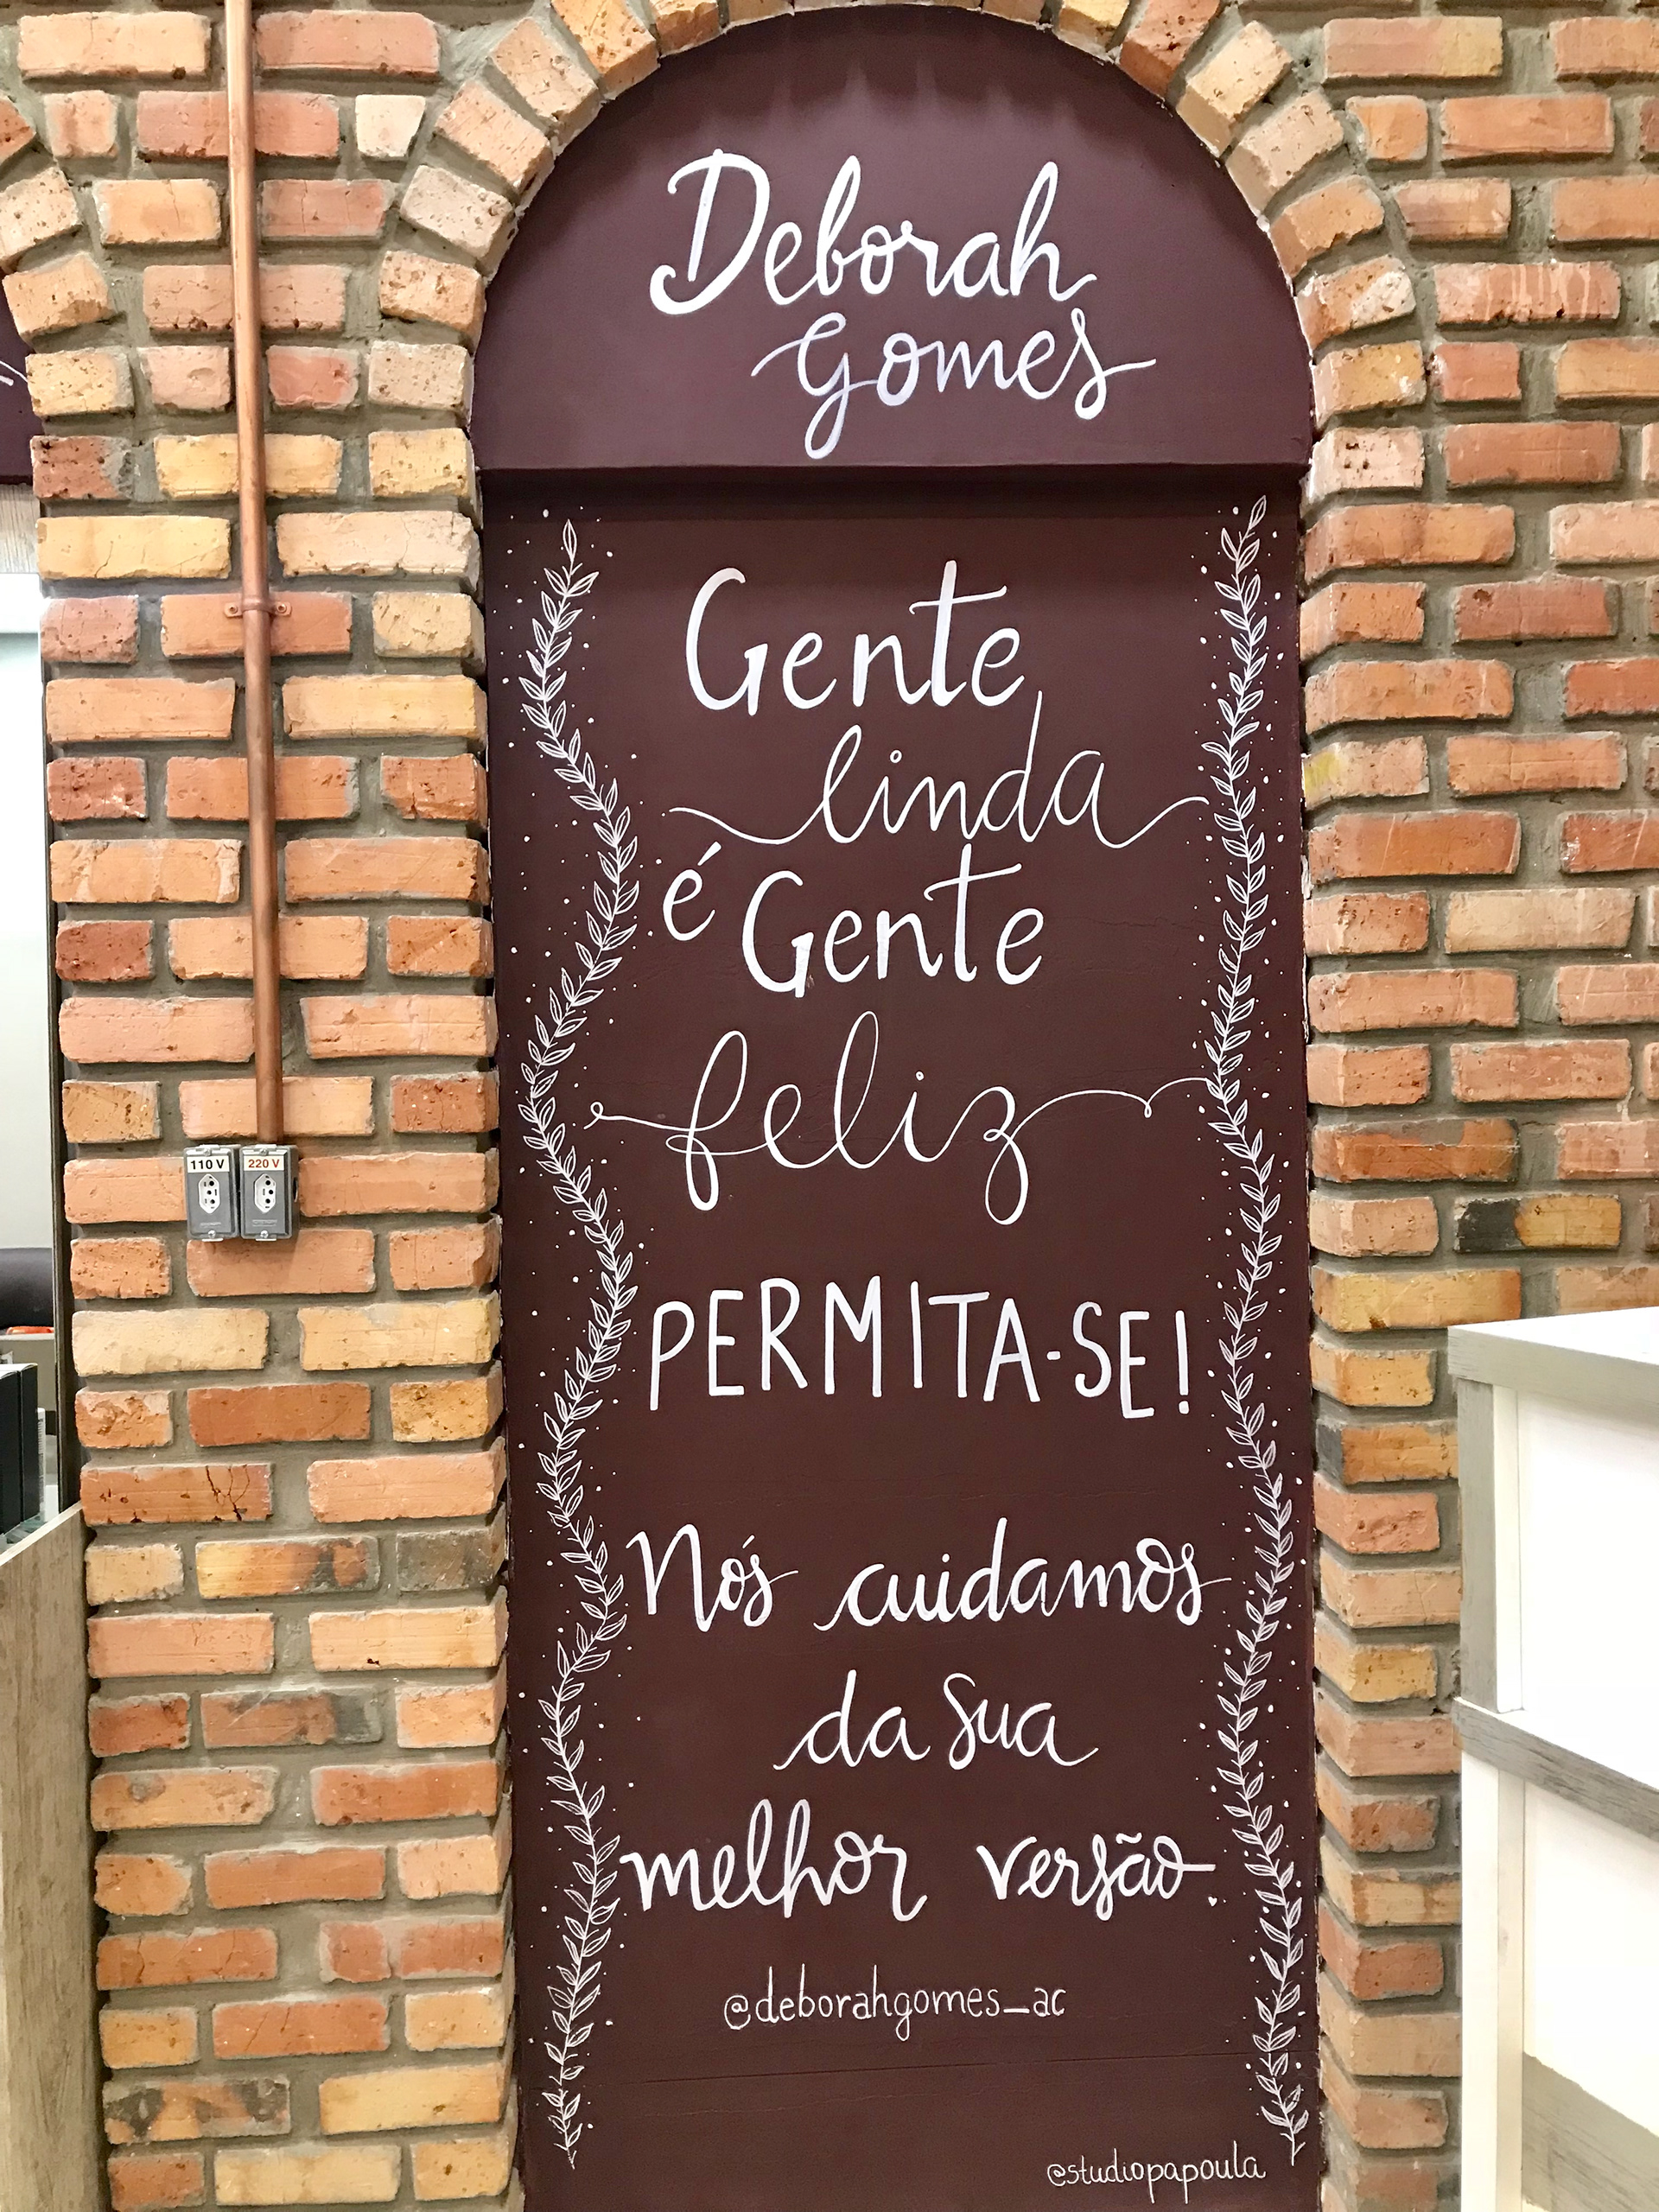 Deborah
Gomes
Gente
linda
é Gente
feliz
PERMITA-SE!
Nós cuidamos
da sua
melhor versão
@deborahgomes_ac
@studiopapoula
110 V 220 V